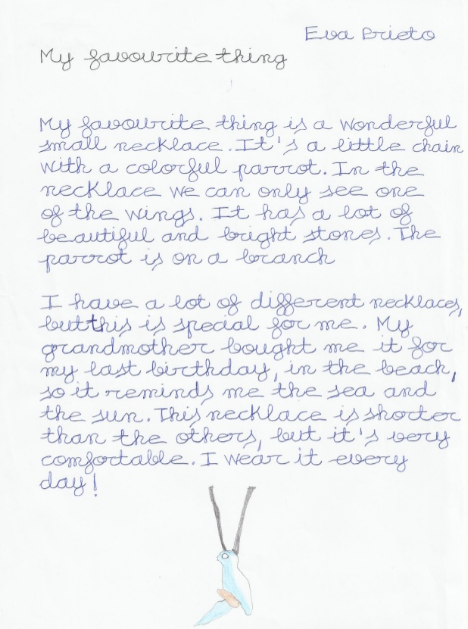 Eva Prieto
My favourite thing
My favourite thing is a wonderful
small necklace. It's a little chain
with a colorful parrot. In the
necklace we can only see one
of the wings. It has a lot of
beautiful and bright stones. The
parrot is on a branch
I have a lot of different necklaces,
but this is special for me. My
grandmother bought me it for
my last birthday, in the beach,
so it reminds me the sea and
the sun. This necklace is shorter
than the others, but it's very
comfortable. I wear it every
day!